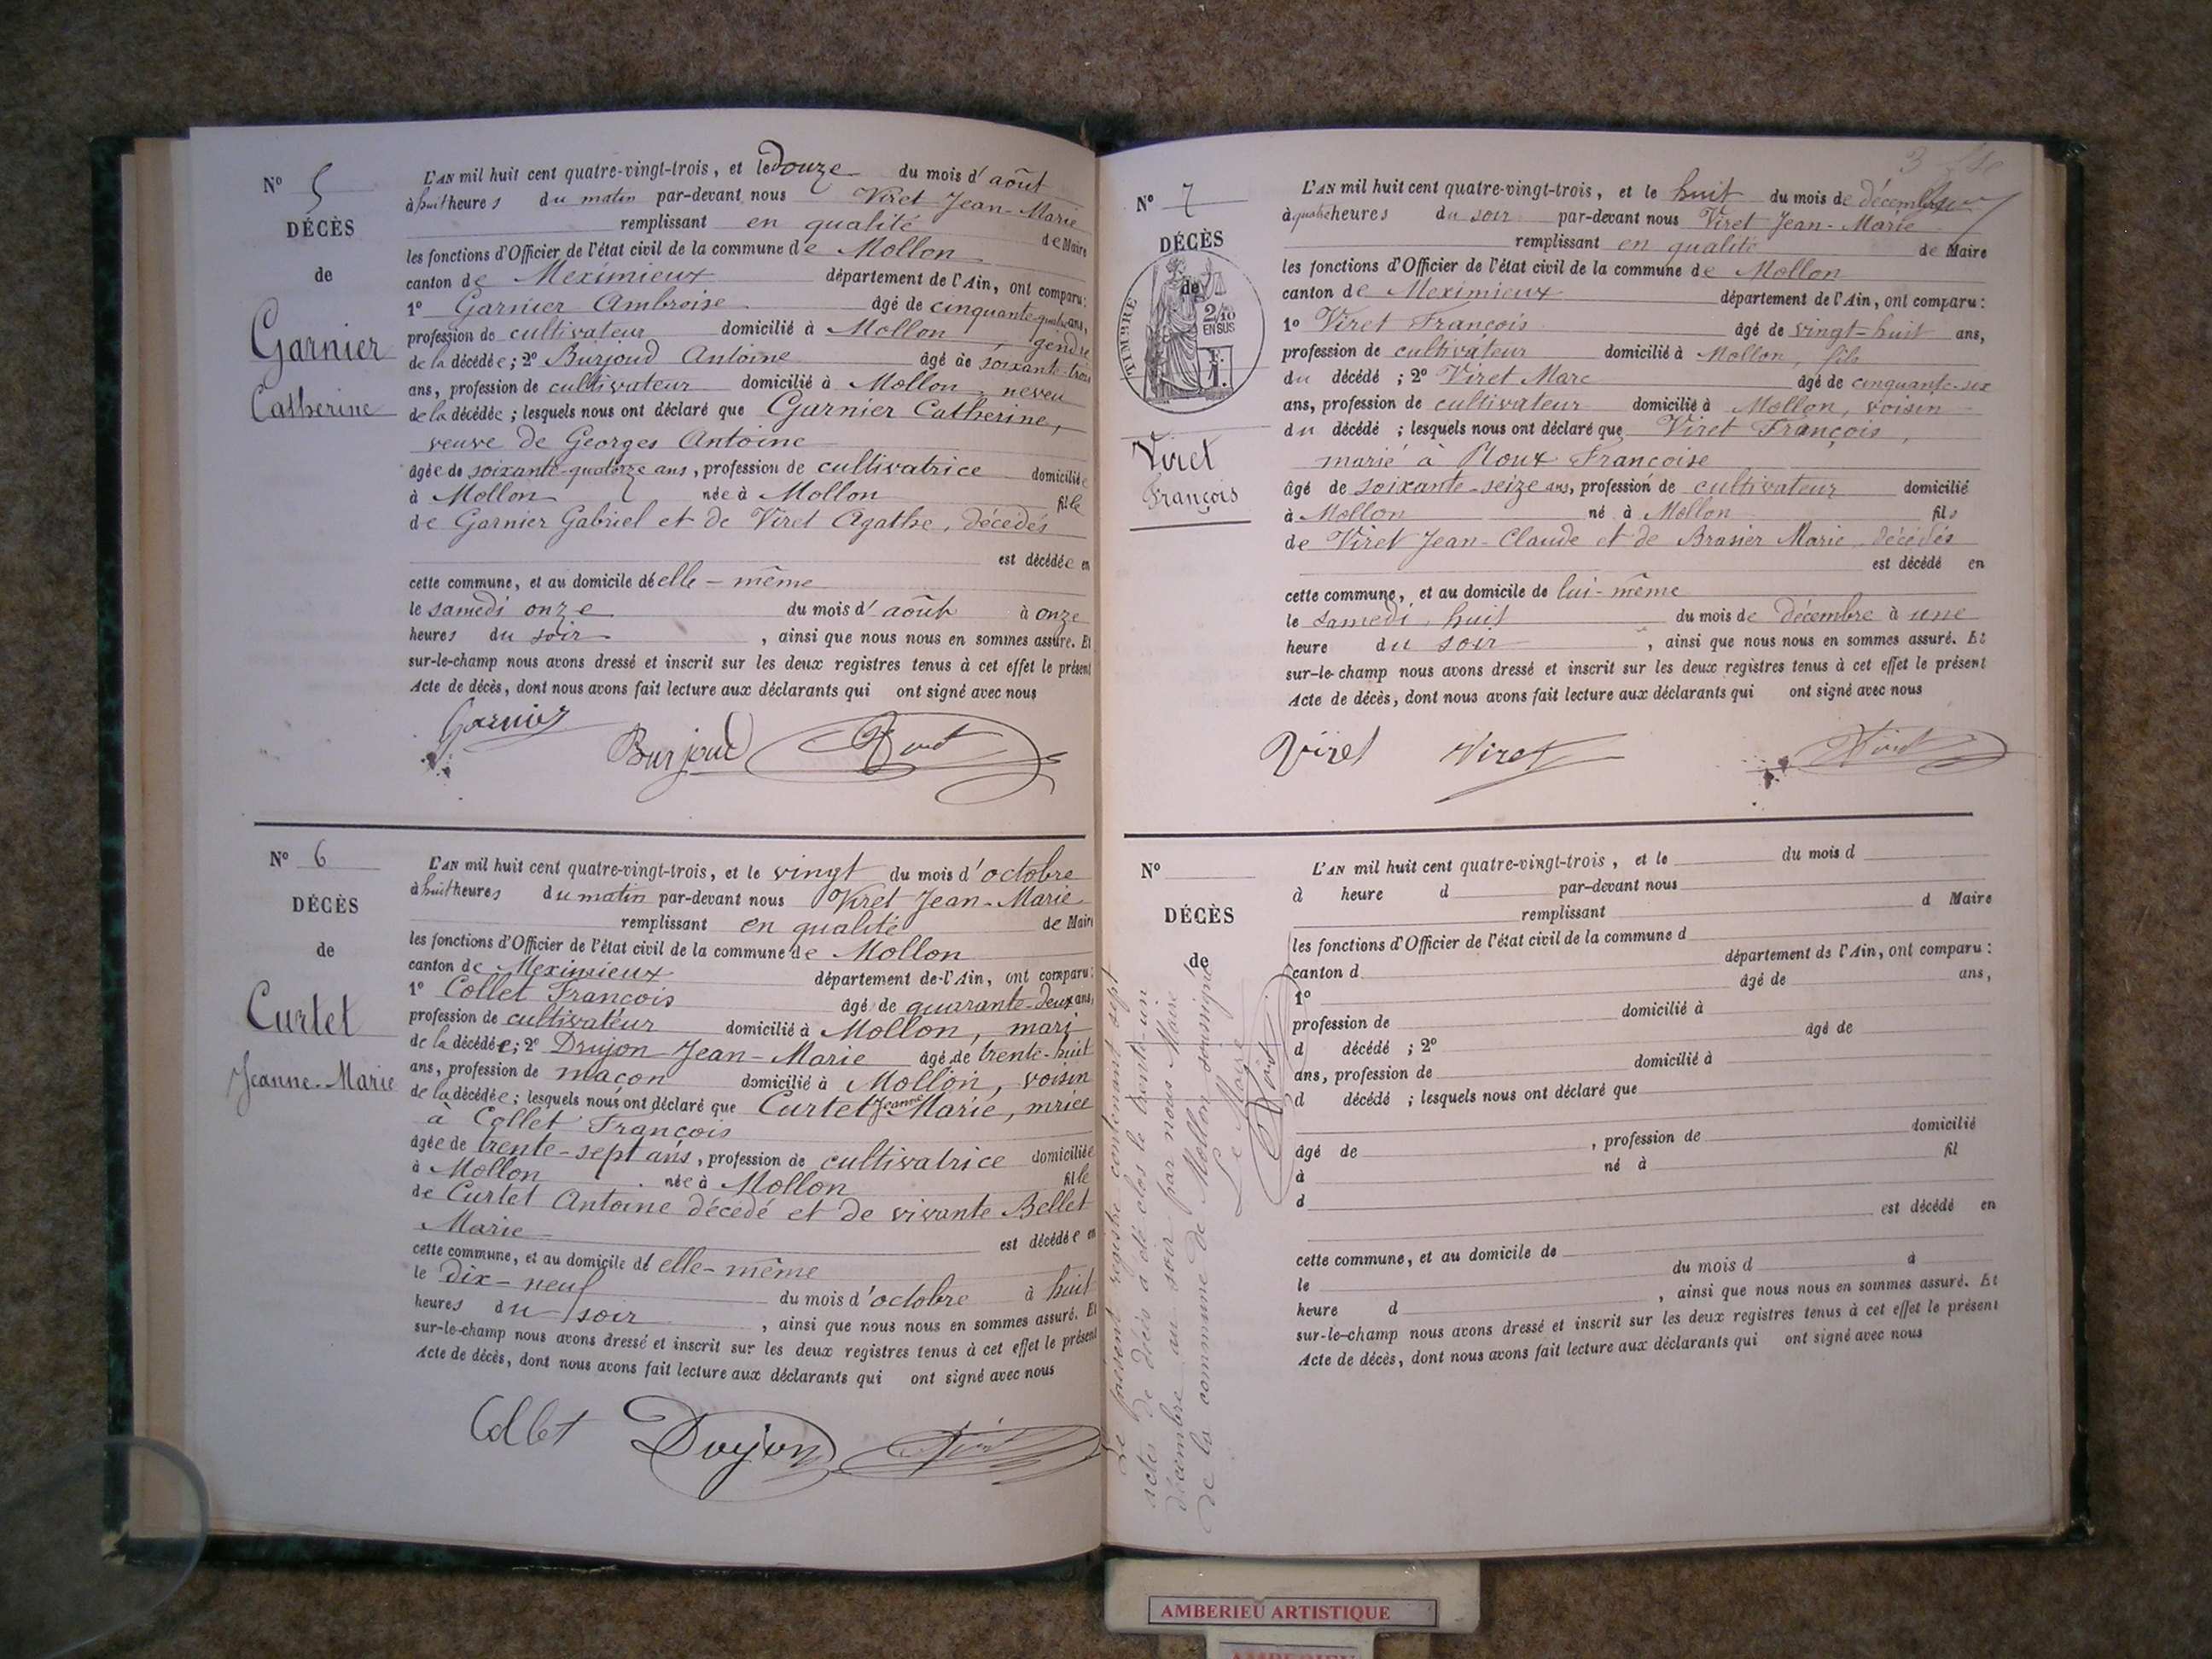 N° 5
DÉCÈS
de
Garnier
Catherine
L'AN mil huit cent quatre-vingt-trois, et le douze du mois d'août
à huit heures du matin par-devant nous Viret Jean-Marie
remplissant en qualité de Maire
les fonctions d'Officier de l'état civil de la commune de Mollon
canton de Meximieux département de l'Ain, ont comparu:
1° Garnier Ambroise âgé de cinquante-quatre ans,
profession de cultivateur domicilié à Mollon, gendre
de la décédée; 2° Burjoud Antoine âgé de soixante-trois
ans, profession de cultivateur domicilié à Mollon, neveu
de la décédée; lesquels nous ont déclaré que Garnier Catherine,
veuve de Georges Antoine
âgée de soixante-quatorze ans, profession de cultivatrice domiciliée
à Mollon née à Mollon fille
de Garnier Gabriel et de Viret Agathe, décédés
est décédée en
cette commune, et au domicile de elle-même
le samedi onze du mois d'août à onze
heures du soir, ainsi que nous nous en sommes assuré. Et
sur-le-champ nous avons dressé et inscrit sur les deux registres tenus à cet effet le présent
Acte de décès, dont nous avons fait lecture aux déclarants qui ont signé avec nous
Garnier Burjoud Viret
N° 6
DÉCÈS
de
Curtet
Jeanne-Marie
L'AN mil huit cent quatre-vingt-trois, et le vingt du mois d'octobre
à huit heures du matin par-devant nous Viret Jean-Marie
remplissant en qualité de Maire
les fonctions d'Officier de l'état civil de la commune de Mollon
canton de Meximieux département de l'Ain, ont comparu:
1° Collet François âgé de quarante-deux ans,
profession de cultivateur domicilié à Mollon, mari
de la décédée; 2° Drujon Jean-Marie âgé de trente-huit
ans, profession de maçon domicilié à Mollon, voisin
de la décédée; lesquels nous ont déclaré que Curtet Jeanne Marie, mriée
à Collet François
âgée de trente-sept ans, profession de cultivatrice domiciliée
à Mollon née à Mollon fille
de Curtet Antoine décédé et de vivante Bellet
Marie est décédée en
cette commune, et au domicile de elle-même
le dix-neuf du mois d'octobre à huit
heures du soir, ainsi que nous nous en sommes assuré. Et
sur-le-champ nous avons dressé et inscrit sur les deux registres tenus à cet effet le présent
Acte de décès, dont nous avons fait lecture aux déclarants qui ont signé avec nous
Collet Drujon Viret
N° 7
DÉCÈS
de
TIMBRE
2/10
EN SUS
Viret
François
L'AN mil huit cent quatre-vingt-trois, et le huit du mois de décembre
à quatre heures du soir par-devant nous Viret Jean-Marie
remplissant en qualité de Maire
les fonctions d'Officier de l'état civil de la commune de Mollon
canton de Meximieux département de l'Ain, ont comparu:
1° Viret François âgé de vingt-huit ans,
profession de cultivateur domicilié à Mollon, fils
du décédé; 2° Viret Marc âgé de cinquante-six
ans, profession de cultivateur domicilié à Mollon, voisin
du décédé; lesquels nous ont déclaré que Viret François,
marié à Roux Françoise
âgé de soixante-seize ans, profession de cultivateur domicilié
à Mollon né à Mollon fils
de Viret Jean-Claude et de Brasier Marie décédés
est décédé en
cette commune, et au domicile de lui-même
le samedi, huit du mois de décembre à une
heure du soir, ainsi que nous nous en sommes assuré. Et
sur-le-champ nous avons dressé et inscrit sur les deux registres tenus à cet effet le présent
Acte de décès, dont nous avons fait lecture aux déclarants qui ont signé avec nous
Viret Viret Viret
N°
DÉCÈS
de
Le présent registre contenant sept
actes de décès a été clos le trente-un
décembre au soir par nous Maire
de la commune de Mollon soussigné
Le Maire
Viret
L'AN mil huit cent quatre-vingt-trois, et le du mois d
à heure d par-devant nous
remplissant d Maire
les fonctions d'Officier de l'état civil de la commune d
canton d département de l'Ain, ont comparu:
1° âgé de ans,
profession de domicilié à
d décédé; 2° âgé de
ans, profession de domicilié à
d décédé; lesquels nous ont déclaré que
âgé de, profession de domicilié
à né à fil
d
est décédé en
cette commune, et au domicile de
le du mois d à
heure d, ainsi que nous nous en sommes assuré. Et
sur-le-champ nous avons dressé et inscrit sur les deux registres tenus à cet effet le présent
Acte de décès, dont nous avons fait lecture aux déclarants qui ont signé avec nous
AMBERIEU ARTISTIQUE
AMBERIEU